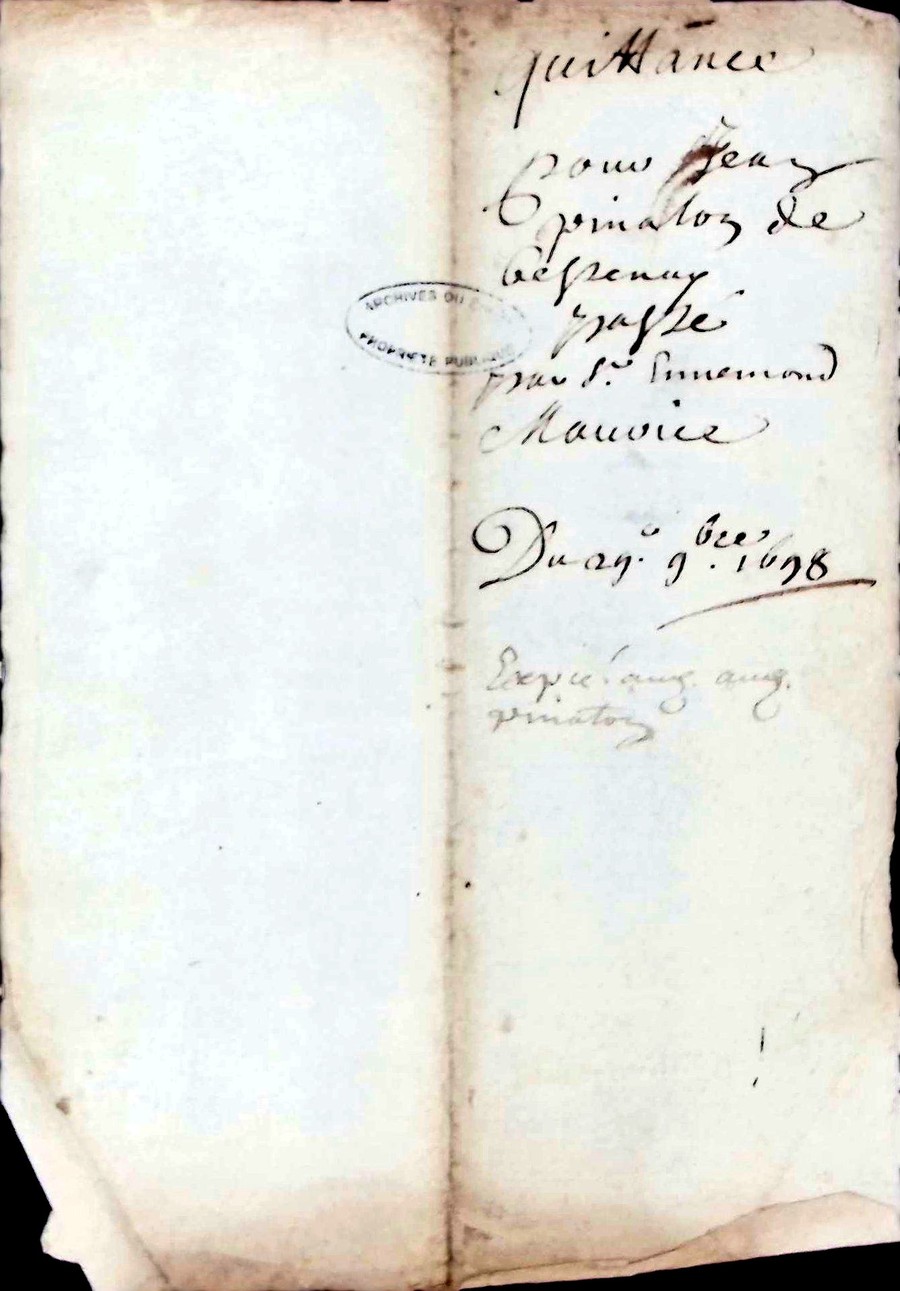 quittance
pour Jean
pinaton de
bessenay
passé
par Sr. Ennemond
Mauvice
Du 29e. 9bre. 1698
Expié. aug. aug.
pinaton
ARCHIVES DU
PROPRIÉTÉ PUBLIQUE